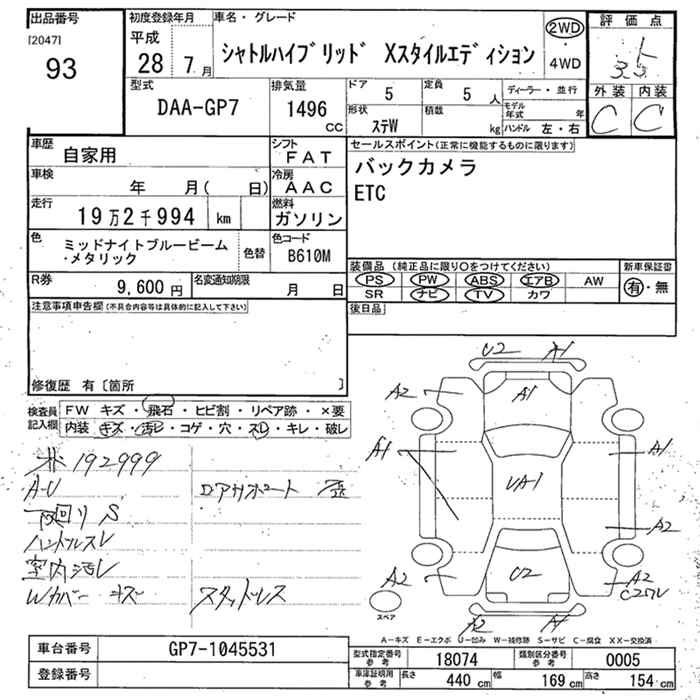 出品番号
[2047]
93
初度登録年月
平成
28 7月
車名・グレード
シャトルハイブリッド Xスタイルエディション
2WD
4WD
評価点
3.5
外装 内装
C C
型式
DAA-GP7
排気量
1496
CC
ドア 5
定員 5 人
形状 ステW
積載 kg
ディーラー・並行
モデル年式 年
ハンドル 左・右
車歴
自家用
シフト
FAT
車検
年 月( 日)
冷房
AAC
走行
19万2千994 km
燃料
ガソリン
色
ミッドナイトブルービーム
・メタリック
色替
色コード
B610M
R券
9,600 円
名変通知期限
月 日
セールスポイント(正常に機能するものに限ります)
バックカメラ
ETC
装備品 (純正品に限り〇をつけてください)
PS PW ABS エアB AW
SR ナビ TV カワ
新車保証書
有・無
後日品
注意事項申告欄(不具合内容等は具体的に記入して下さい)
修復歴 有〔箇所 〕
検査員記入欄
FW キズ・飛石・ヒビ割・リペア跡・×要
内装 キズ・汚レ・コゲ・穴・スレ・キレ・破レ
192999
A-U
下回り S
ハンドルスレ
室内汚レ
Wカバー キズ
ロアサポート 歪
スタッドレス
U2 A1
A2 A1
A1 UA1 A1
A2
A2 U2 A2
A2
スペア
A-キズ E-エクボ U-凹み W-補修跡 S-サビ C-腐食 XX-交換済
車台番号
GP7-1045531
登録番号
型式指定番号 参考 18074
類別区分番号 参考 0005
車庫証明用 参考 長さ 440 cm 幅 169 cm 高さ 154 cm